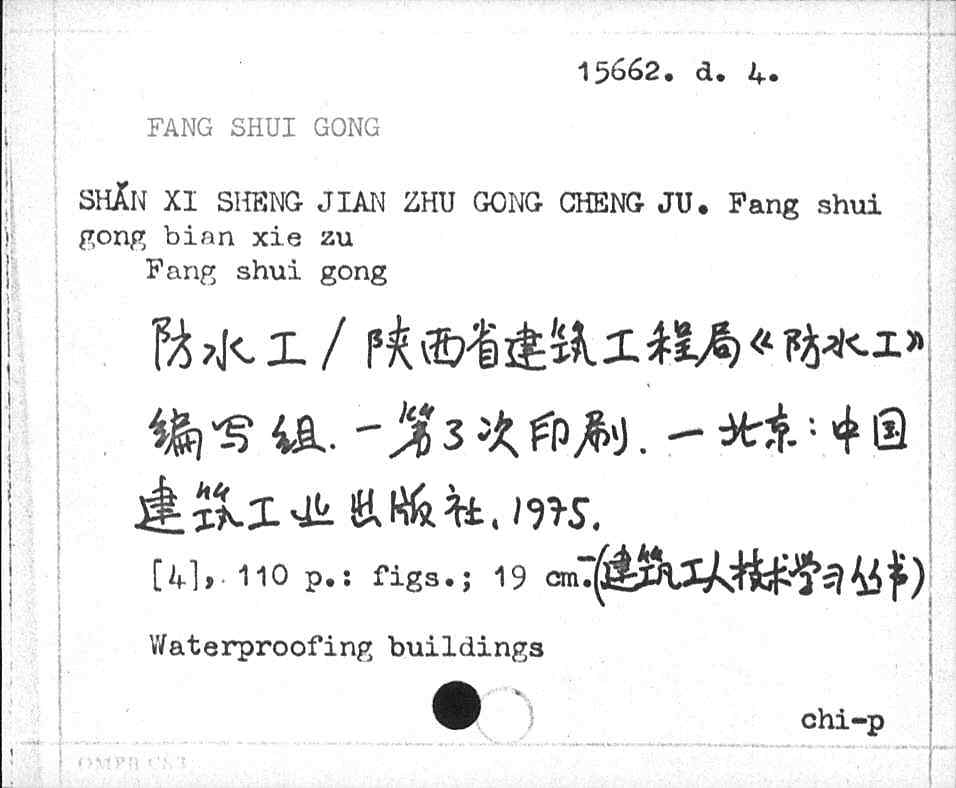 15662. d. 4.
FANG SHUI GONG
SHǍN XI SHENG JIAN ZHU GONG CHENG JU. Fang shui
gong bian xie zu
Fang shui gong
防水工/陕西省建筑工程局《防水工》
编写组.—第3次印刷.—北京:中国
建筑工业出版社,1975.
[4], 110 p.: figs.; 19 cm.—(建筑工人技术学习丛书)
Waterproofing buildings
chi-p
OMPB CS3